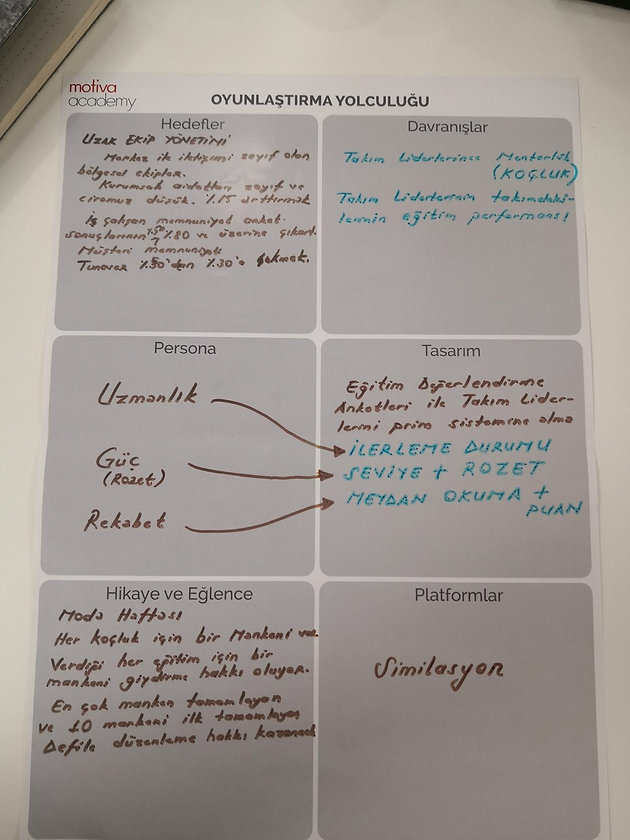 motiva
academy
OYUNLAŞTIRMA YOLCULUĞU
Hedefler
UZAK EKİP YÖNETİMİ
Merkez ile iletişimi zayıf olan
bölgesel ekipler.
Kurumsak aidatları zayıf ve
ciromuz düşük. %15 arttırmak
İş çalışan memnuniyet anket
sonuçlarının %50 %80 ve üzerine çıkart
Müşteri memnuniyeti
Tunover %50'den %30'a çekmek.
Davranışlar
Takım Liderlerince Mentorluk
(KOÇLUK)
Takım Liderlerinin takımdaki-
lerinin eğitim performansı!
Persona
Uzmanlık
Güç
(Rozet)
Rekabet
Tasarım
Eğitim Değerlendirme
Anketleri ile Takım Lider-
lerini prim sistemine alma
İLERLEME DURUMU
SEVİYE + ROZET
MEYDAN OKUMA +
PUAN
Hikaye ve Eğlence
Moda Haftası
Her koçluk için bir Mankeni var.
Verdiği her eğitim için bir
mankeni giydirme hakkı oluyor.
En çok manken tamamlayan
ve 10 mankeni ilk tamamlayan
Defile düzenleme hakkı kazanacak
Platformlar
Similasyon